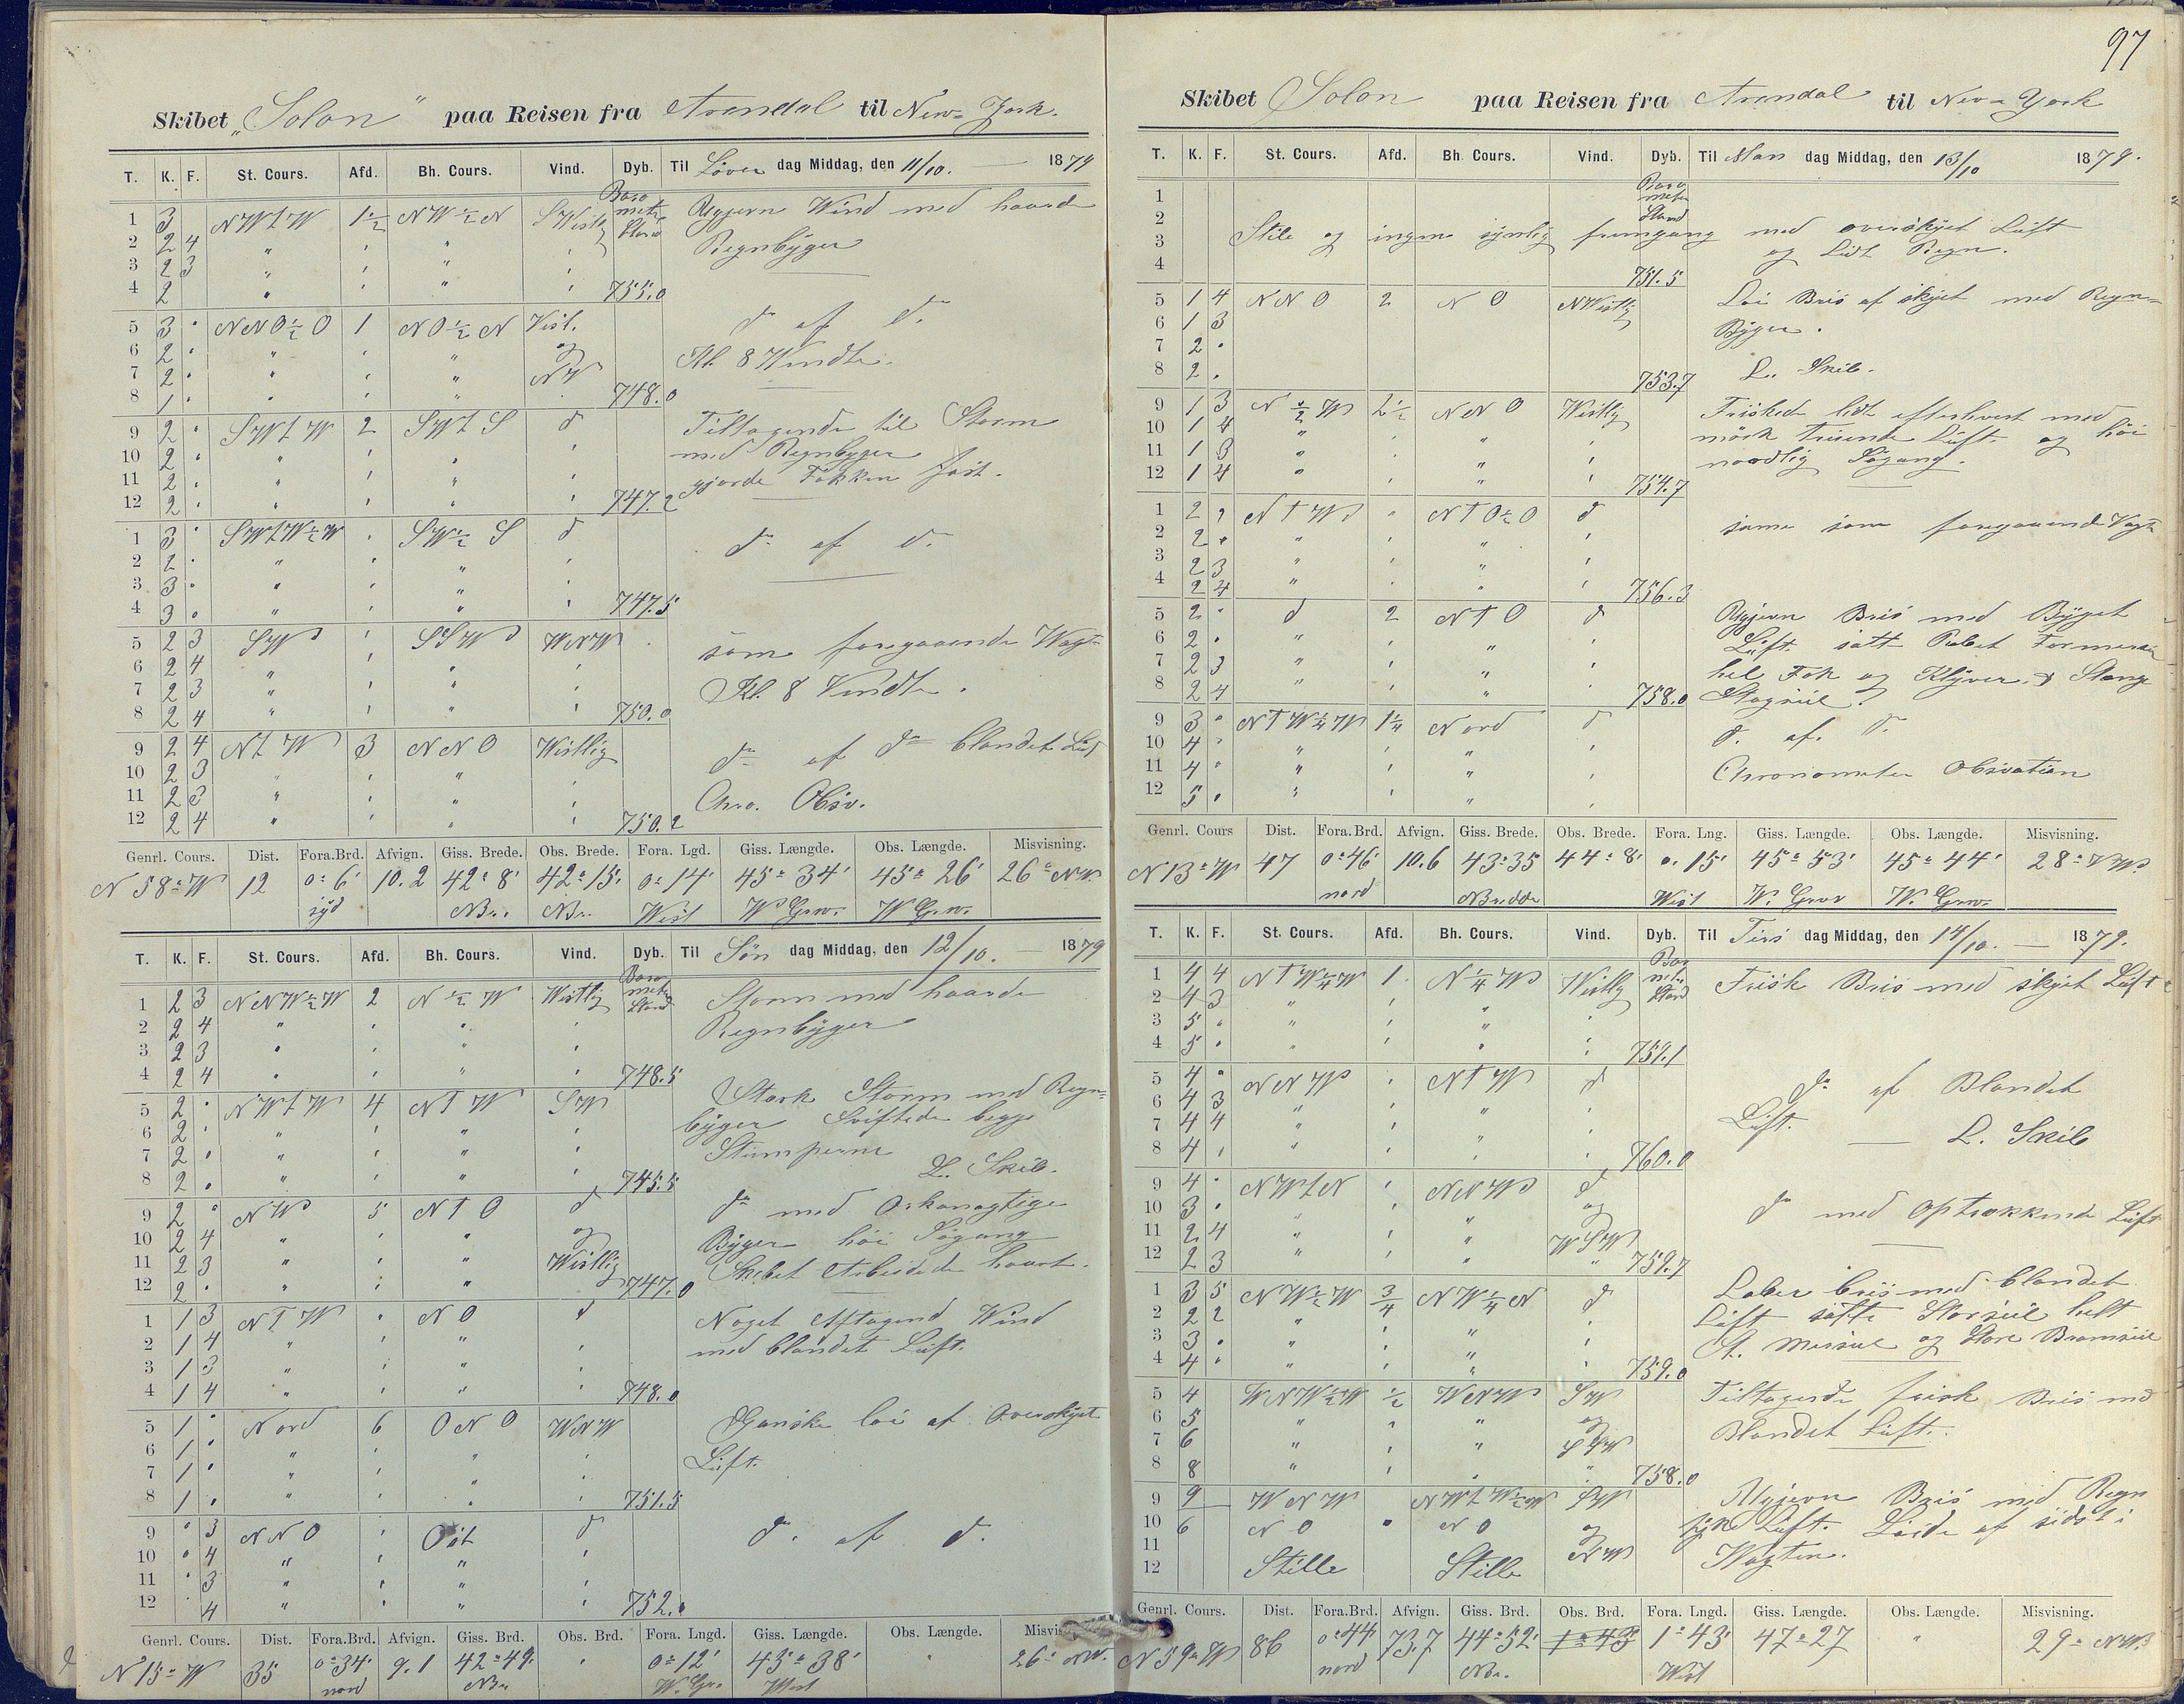 97
Skibet „Solon" paa Reisen fra Arendal til New-York.
T. K. F. St. Cours. Afd. Bh. Cours. Vind. Dyb. Til Löver dag Middag, den 11/10. — 1879
Baro
meter
Stand
1 3 NWtW 1½ NW½N SWestlig Ugjevn Wind med haarde
2 2 4 " " " " Regnbÿger
3 2 3 " " " "
4 2 " " " " 755.0
5 3 " NNO½O 1 NO½N Vest. do af do
6 2 " " " " og Kl. 8 Vendte.
7 2 " " " " NW
8 1 " " " " 748.0
9 2 " SWtW 2 SWtS d Tiltagende til Storm
10 2 " " " " " med Regnbyger
11 2 " " " " " gjorde Fokken fast.
12 2 " " " " " 747.2
1 3 " SWtW½W " SW½S d do af do
2 2 " " " " "
3 3 " " " " "
4 3 " " " " " 747.5
5 2 3 SW " SSW WNW som foregaaende Wagt
6 2 4 " " " " Kl. 8 Vendte.
7 2 3 " " " "
8 2 4 " " " " 750.0
9 2 4 NtW 3 NNO Westlig do af do blandet Luft
10 2 3 " " " "
11 2 3 " " " " Chro. Obsv.
12 2 4 " " " " 750.2
Genrl. Cours. Dist. Fora.Brd. Afvign. Giss. Brede. Obs. Brede. Fora. Lgd. Giss. Længde. Obs. Længde. Misvisning.
N 58° W 12 0° 6' 10.2 42° 8' 42° 15' 0° 14' 45° 34' 45° 26' 26° NW.
syd NBr. NBr. West W Grw. W Grw.
T. K. F. St. Cours. Afd. Bh. Cours. Vind. Dyb. Til Søn dag Middag, den 12/10. — 1879
Baro
meter
Stand
1 2 3 NNW½W 2 N½W Westlig Storm med haarde
2 2 4 " " " " Regnbÿger
3 2 3 " " " "
4 2 4 " " " " 748.5
5 2 " NWtW 4 NTW SW Stærk Storm med Regn=
6 2 " " " " " bÿger Sviftede begge
7 2 " " " " " Stumperne
8 2 " " " " " 745.5 L. Skib.
9 2 " NW 5 NTO d do med Orkanagtige
10 2 4 " " " og Bÿger høi Søgang
11 2 3 " " " Westlig Skibet Arbeidede haart.
12 2 " " " " 747.0
1 1 3 NTW " NO d Noget Aftagend Wind
2 1 4 " " " " med blandet Luft.
3 1 3 " " " "
4 1 4 " " " " 748.0
5 1 " Nord 6 ONO WNW Ganske løi af Overskÿet
6 1 " " " " " Luft.
7 1 " " " " "
8 1 " " " " " 751.5
9 " 3 NNO " Ost d do af do
10 " 4 " " " "
11 " 3 " " " "
12 " 4 " " " " 752.
Genrl. Cours. Dist. Fora.Brd. Afvign. Giss. Brd. Obs. Brd. Fora. Lngd. Giss. Længde. Obs. Længde. Misvisning.
N 15° W 35 0° 34' 9.1 42° 49' " 0° 12' 45° 38' " 26° NW.
nord NBr W. Gr. West
Skibet Solon paa Reisen fra Arendal til New-York
T. K. F. St. Cours. Afd. Bh. Cours. Vind. Dyb. Til Man dag Middag, den 13/10 1879.
Baro
meter
Stand
1
2 Stile og ingen synlig fremgang med overskÿet Luft
3 og Lidt Regn.
4 751.5
5 1 4 NNO 2 NO NWestlig Løi Bris af skÿet med Regn=
6 1 3 Bÿger.
7 2 "
8 2 " 753.7 L. Skib.
9 1 3 N½W 2½ NNO Westlig Friskede lidt efterhvert med
10 1 4 " " " " mörk Luft og høi
11 1 3 " " " " nordlig Søgang.
12 1 4 " " " " 754.7
1 2 " NTW " NTO½O d same som foregaaende Vagt
2 2 " " " " "
3 2 3 " " " "
4 2 4 " " " " 756.3
5 2 " d 2 NTO d Ugjevn Bris med Bÿget
6 2 " " " " " Luft. satt Rebet
7 2 3 " " " " hel Fok og Klÿver & Stænge
8 2 4 " " " " 758.0 Stagseil.
9 3 " NTW¼W 1¼ Nord d d. af. d.
10 4 " " " " "
11 4 " " " " " Chronometer Obsvation
12 5 " " " " "
Genrl. Cours Dist. Fora.Brd. Afvign. Giss. Brede. Obs. Brede. Fora. Lng. Giss. Længde. Obs. Længde. Misvisning.
N 13° W 47 0° 46' 10.6 43° 35 44° 8' 0. 15' 45° 53' 45° 44' 28° NW.
nord NBredde West W. Grw W. Grw.
T. K. F. St. Cours. Afd. Bh. Cours. Vind. Dyb. Til Tirs dag Middag, den 14/10. — 1879.
Baro
meter
Stand
1 4 4 NTW¼W 1 N¼W Westlig Frisk Bris med skÿet Luft
2 4 3 " " " "
3 5 " " " " "
4 5 " " " " " 759.1
5 4 " NNW " NTW d do af Blandet
6 4 3 " " " " Luft.
7 4 4 " " " " — L. Skib
8 4 " " " " " 760.0
9 4 " NWtN " NNW d
10 3 " " " " og do med optrækkende Luft
11 2 4 " " " WSW
12 2 3 " " " " 759.7
1 3 5 NW½W ¾ NW¼N d Laber bris med blandet
2 2 2 " " " " Luft satte Storseil helt
3 3 " " " " " St. Mersseil og Store Bramseil
4 4 " " " " " 759.0
5 4 WNW½W ½ WNW SW Tiltagende frisk Bris med
6 5 " " " og Blandet Luft.
7 6 " " " SSW
8 8 " " " " 758.0
9 9 WNW NWtW½W SW Ugjevn Bris med Regn
10 6 NO " NO og tÿk Luft. Løiede af sidst i
11 NW Wagten.
12 Stille Stille
Genrl. Cours. Dist. Fora.Brd. Afvign. Giss. Brd. Obs. Brd. Fora. Lngd. Giss. Længde. Obs. Længde. Misvisning.
N 59° W 86 0° 44' 73.7 44° 52' 1° 43 1° 43' 47° 27 " 29° NW.
nord NBr. West